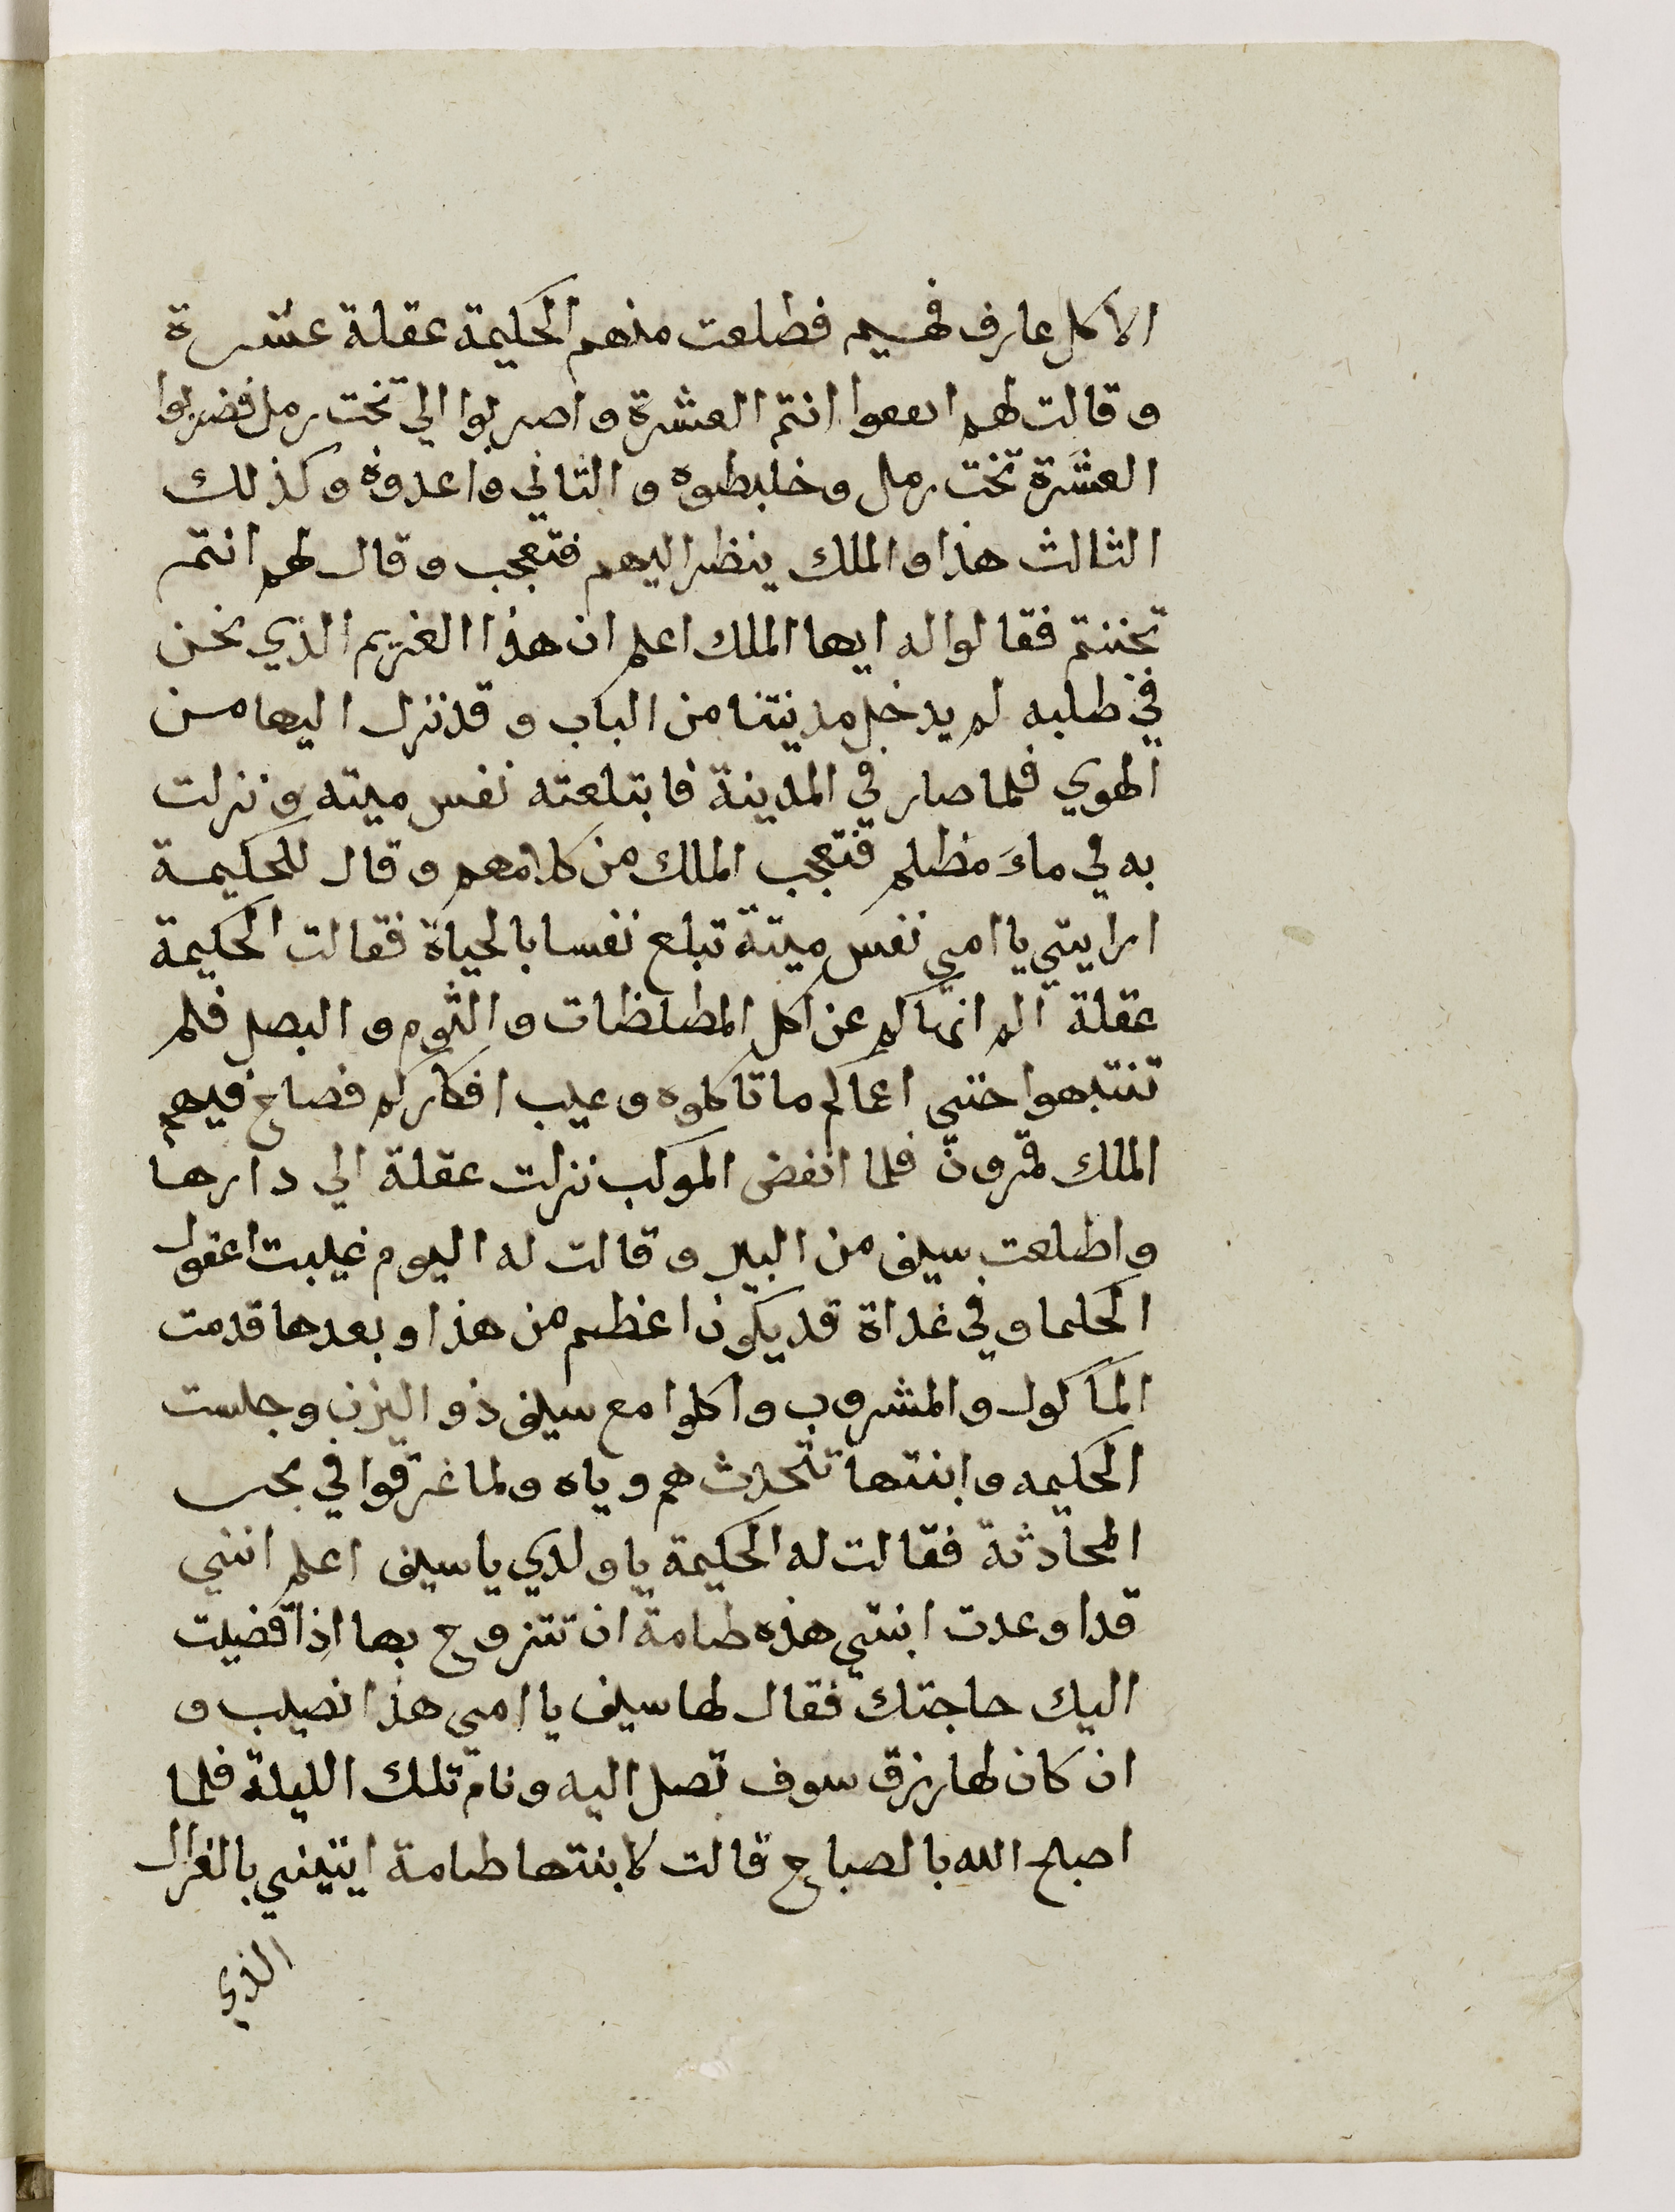 الا كل عارف فهيم فطلعت منهم الحكيمة عقلة عشرة
و قالت لهم انتم العشرة و اضربوا الي تخت رمل فضربوا
العشرة تخت رمل و خلبطوه و الثاني و اعدوه و كذلك
الثالث هذا و الملك ينظر اليهم فتعجب و قال لهم انتم
تجننتم فقالوا له ايها الملك اعلم ان هذا الغريم الذي نحن
في طلبه لم يدخل مدينتنا من الباب و قد نزل اليها من
الهوي فلما صار في المدينة فابتلعته نفس ميته و نزلت
به في ماءَ مظلم فتعجب الملك من كلامهم و قال للحكيمة
ارايتي يا امي نفس ميتة تبلع نفسا بالحياة فقالت الحكيمة
عقلة الم انهاكم عن اكل المطلظات و الثوم و البصل فلم
تنتبهوا حتي اعماكم ما تاكلوه و عيب افكاركم فصاح فيهم
الملك قمرون فلما انفض الموكب نزلت عقلة الي دارها
واطلعت سيف من البير و قالت له اليوم غيبت اعقول
الحكما و في غداة قد يكون اعظم من هذا و بعدها قدمت
الماكول و المشروب و اكلوا مع سيف ذو اليزن و جلست
الحكيمه و ابنتها تتحدث هم و ياه و لما غرقوا في بحر
المحادثة فقالت له الحكيمة يا ولدي يا سيف اعلم انني
قد اوعدت ابنتي هذه طامة ان تتزوج بها اذا قضيت
اليك حاجتك فقال لها سيف يا امي هذا نصيب و
ان كان لها رزق سوف تصل اليه و نام تلك الليلة فلما
اصبح الله بالصباح قالت لابنتها طامة ايتيني بالغزال
الذي